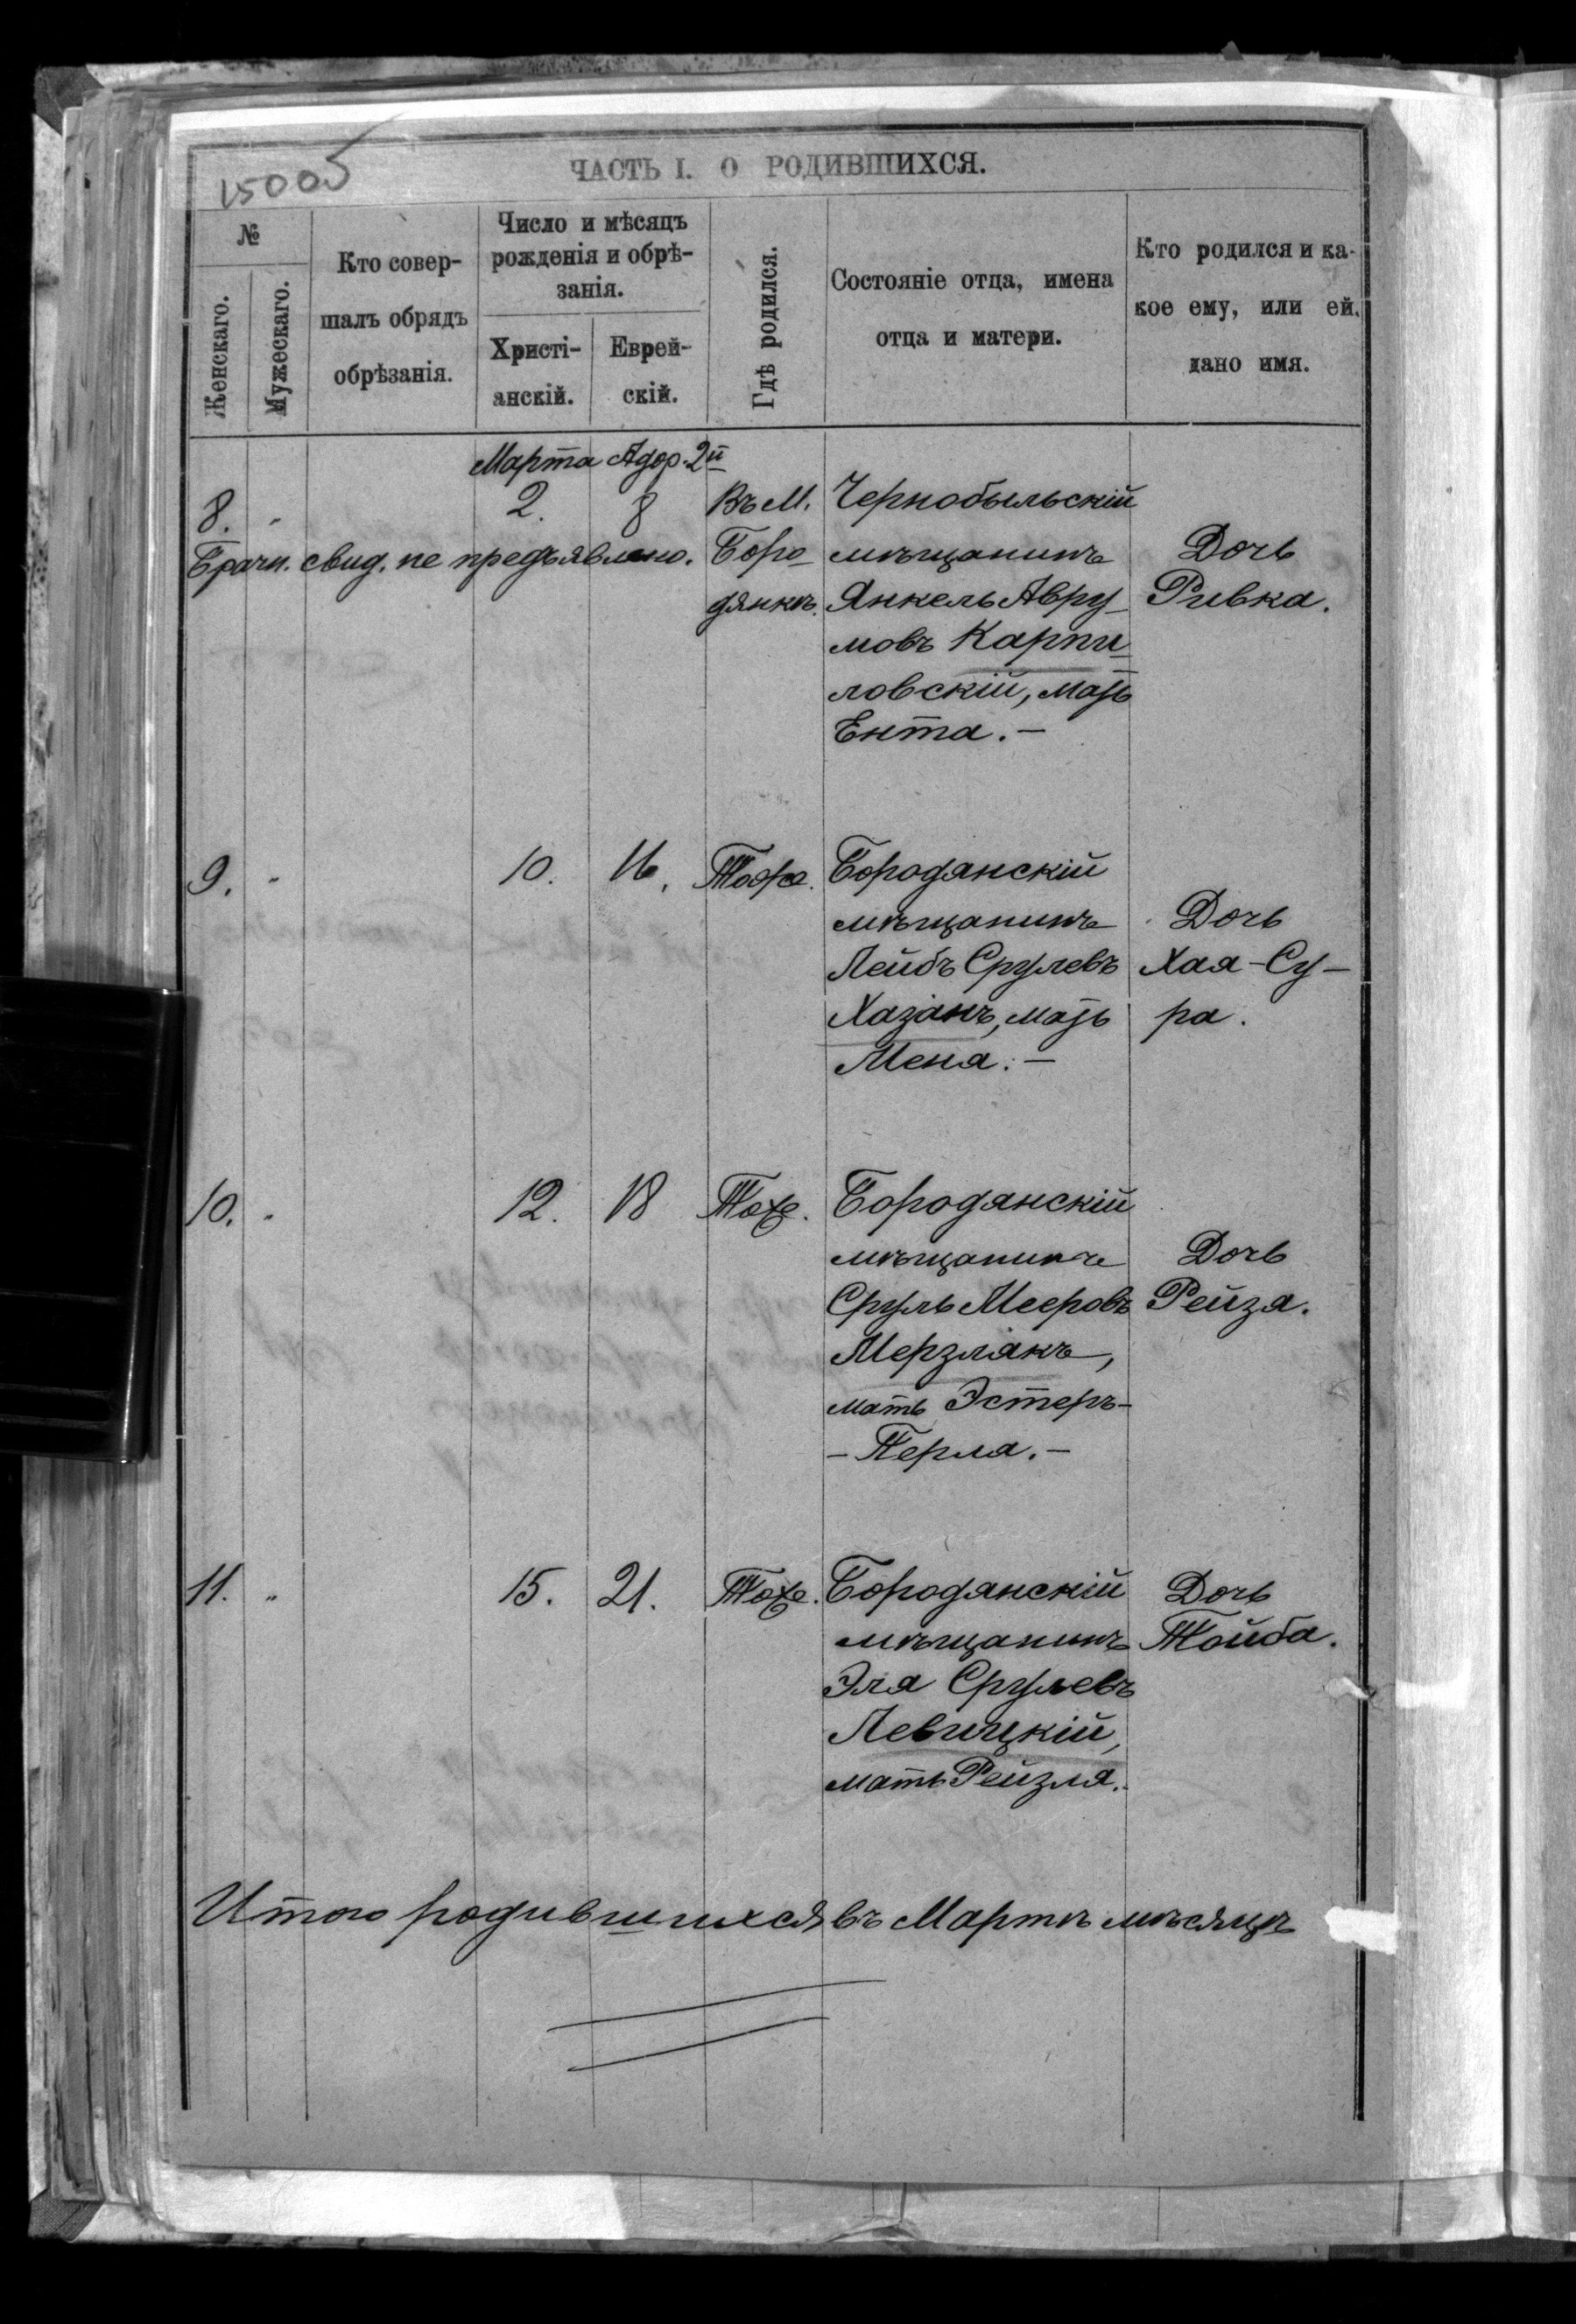 15005
ЧАСТЬ I. О РОДИВШИХСЯ.
№
Женскаго.
Мужескаго.
Кто совер-
шалъ обрядъ
обрѣзанія.
Число и мѣсяцъ
рожденія и обрѣ-
занія.
Христі-
анскій.
Еврей-
скій.
Гдѣ родился.
Состояніе отца, имена
отца и матери.
Кто родился и ка-
кое ему, или ей,
дано имя.
Марта Адор. 2й
8. " 2. 8
Брачн. свид. не предъявлено.
Въ М.
Боро-
дянкѣ.
Чернобыльскій
мѣщанинъ
Янкель Авру-
мовъ Карпи-
ловскій, мать
Ента. —
Дочь
Ривка.
9. " 10. 16. Тоже.
Бородянскій
мѣщанинъ
Лейбъ Срулевъ
Хазанъ, мать
Меня. —
Дочь
Хая-Су-
ра.
10. " 12. 18 Тоже.
Бородянскій
мѣщанинъ
Сруль Мееровъ
Мерзлякъ,
мать Эстеръ-
- Перля. —
Дочь
Рейзя.
11. " 15. 21. Тоже.
Бородянскій
мѣщанинъ
Эля Срулевъ
Левицкій,
мать Рейзля.
Дочь
Тойба.
Итого родившихся въ Мартѣ мѣсяцѣ